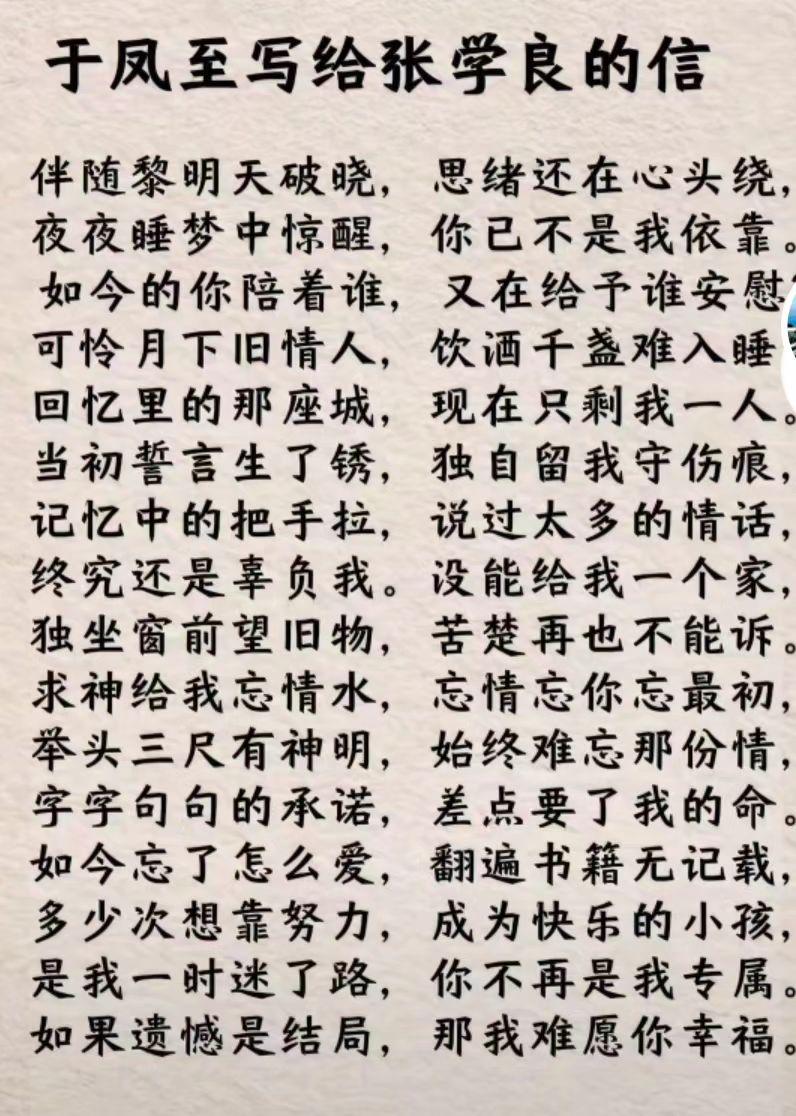 于凤至写给张学良的信
伴随黎明天破晓， 思绪还在心头绕，
夜夜睡梦中惊醒， 你已不是我依靠。
如今的你陪着谁， 又在给予谁安慰
可怜月下旧情人， 饮酒千盏难入睡
回忆里的那座城， 现在只剩我一人。
当初誓言生了锈， 独自留我守伤痕，
记忆中的把手拉， 说过太多的情话，
终究还是辜负我。 没能给我一个家，
独坐窗前望旧物， 苦楚再也不能诉。
求神给我忘情水， 忘情忘你忘最初，
举头三尺有神明， 始终难忘那份情，
字字句句的承诺， 差点要了我的命。
如今忘了怎么爱， 翻遍书籍无记载，
多少次想靠努力， 成为快乐的小孩，
是我一时迷了路， 你不再是我专属。
如果遗憾是结局， 那我难愿你幸福。